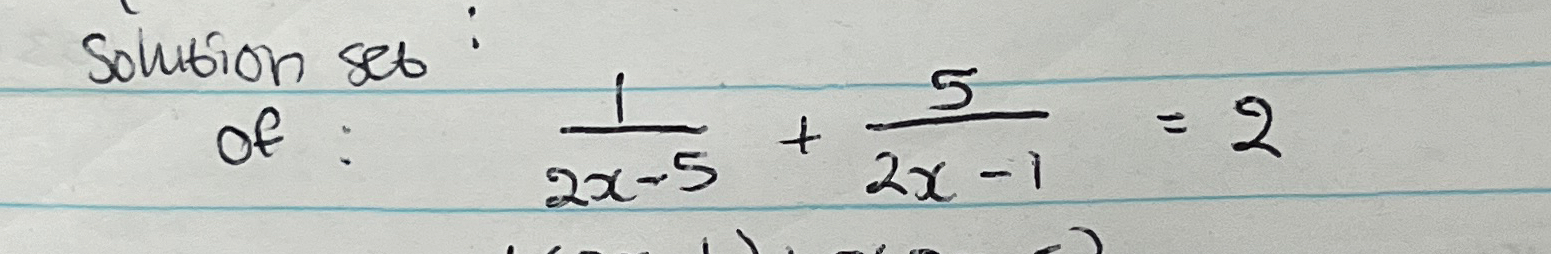 Solution set :
of : 1/(2x-5) + 5/(2x-1) = 2